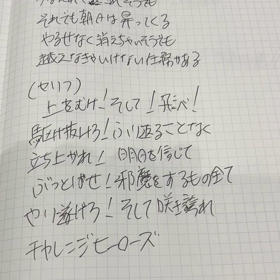 それでも朝日は昇ってくる
やるせなく消えちゃいそうでも
越えなきゃいけない仕務がある
(セリフ)
上をむけ!そして!飛べ!
駆け抜けろ!ふり返ることなく
立ち上がれ!明日を信じて
ぶっとばせ!邪魔をするもの全て
やり遂げろ!そして咲き誇れ
チャレンジヒーローズ